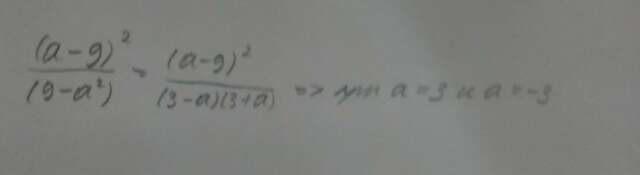 (a-9)² / (9-a²) = (a-9)² / (3-a)(3+a) => при a = 3 и a = -3